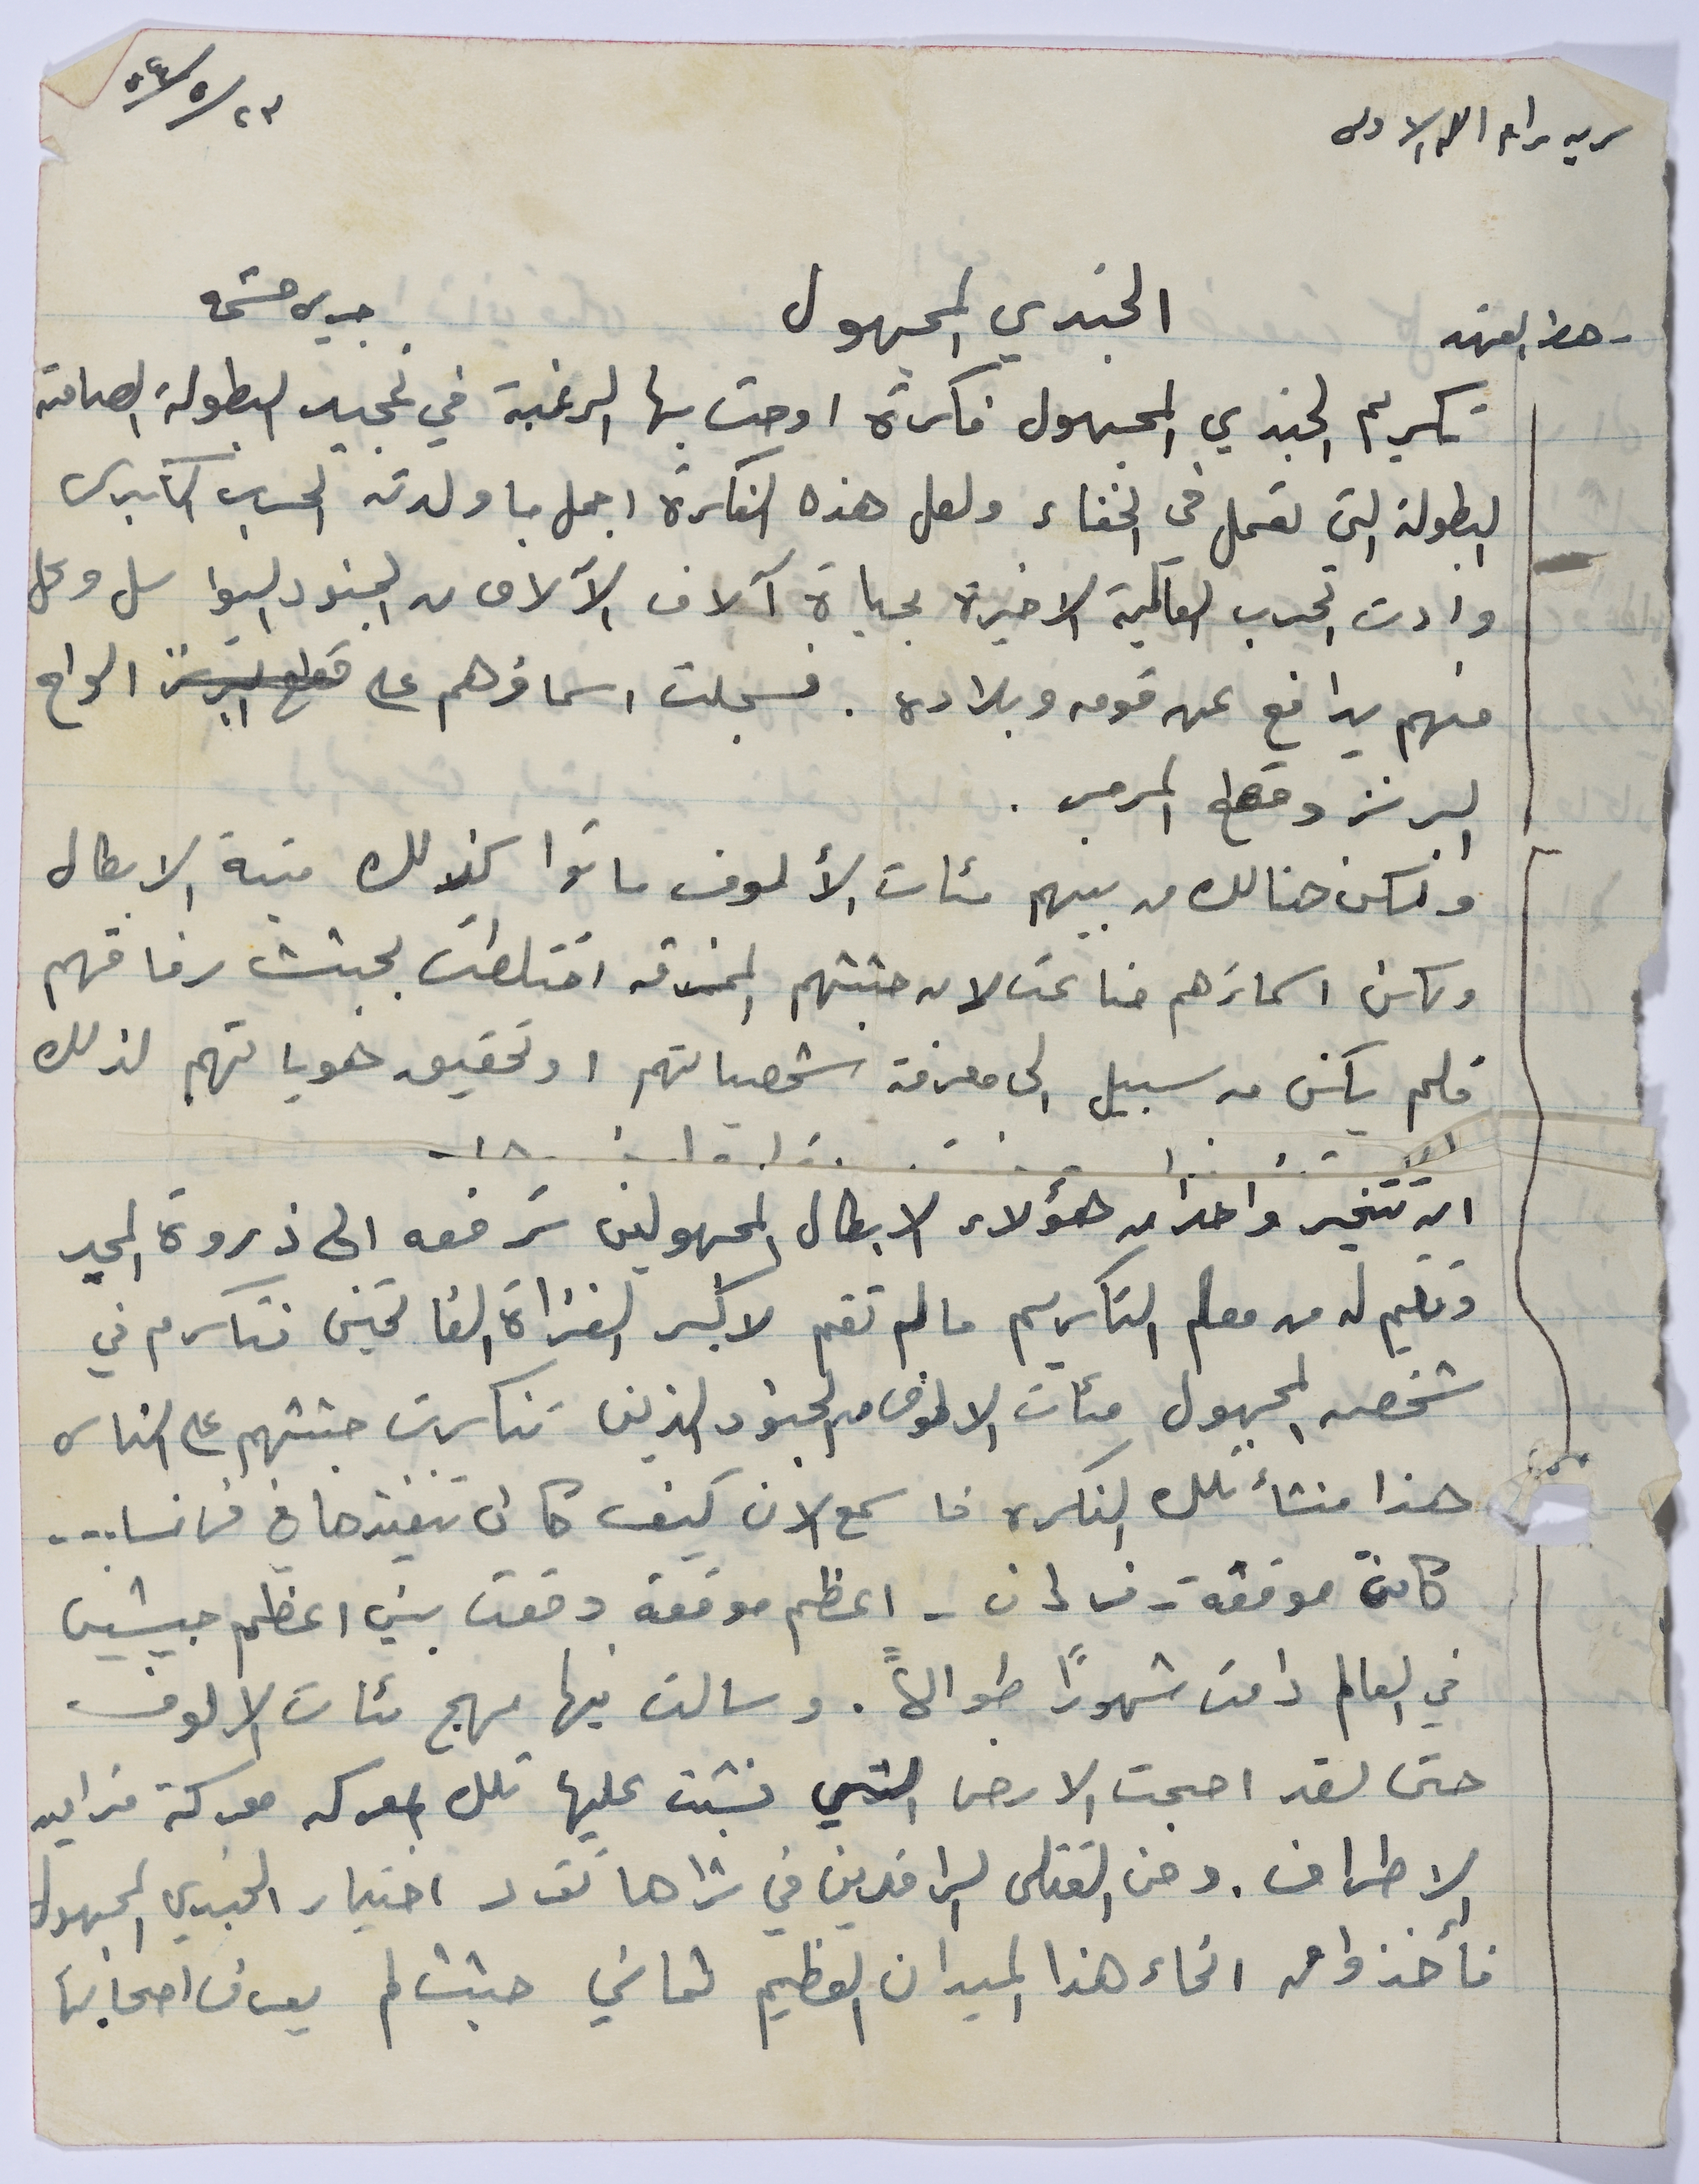 سريه رام الله الاولى
٢٣/٥/٥٤
الجندي المجهول
تكريم الجندي المجهول فكرة اوحت بها الرغبة في تمجيد البطولة الصامته
البطولة التي تعمل في الخفاء ولعل هذه الفكرة اجمل ما ولدته الحرب الكبرى
وادت الحرب العالمية الاخيرة بحياة آلاف الآلاف من الجنود وكل
منهم يدافع عن قومه وبلاده . فسجلت اسماؤهم على قطع البرنز الواح
البرنز وقطع المرمر .
ولكن هنالك من بينهم مئات الألوف ماتوا كذلك ميتة الابطال
ولكن اسمائهم ضاعت لان جثثهم الممزقه اختلطت بجثث رفاقهم
فلم يكن من سبيل الى معرفة شخصياتهم او تحقيق هوياتهم لذلك
ان تتخير واحدا من هؤلاء الابطال المجهولين ترفعه الى ذروة المجد
وتقيم له من معالم التكريم مالم تقم لاكبر الغزاة الفاتحين فتكرم في
شخصه المجهول مئات الالوف من الجنود الذين تنكرت جثثهم على الناس
هذا منشأ تلك الفكره فاسمع الان كيف كان تنفيذها في فرنسا...
كانت موقعة - فردان - اعظم موقعة وقعت بين اعظم جيشين
في العالم دامت شهورًا طوالاً . وسالت فيها مهج مئات الالوف
حتى لقد اصبحت الارض التي نشبت عليها تلك المعركه معركة مترامية
الاطراف . ومن القتلى الراقدين في ثراها تقرر اختيار الجندي المجهول
فأخذوا من انحاء هذا الميدان العظيم ثماني جثث لم يعرف اصحابها